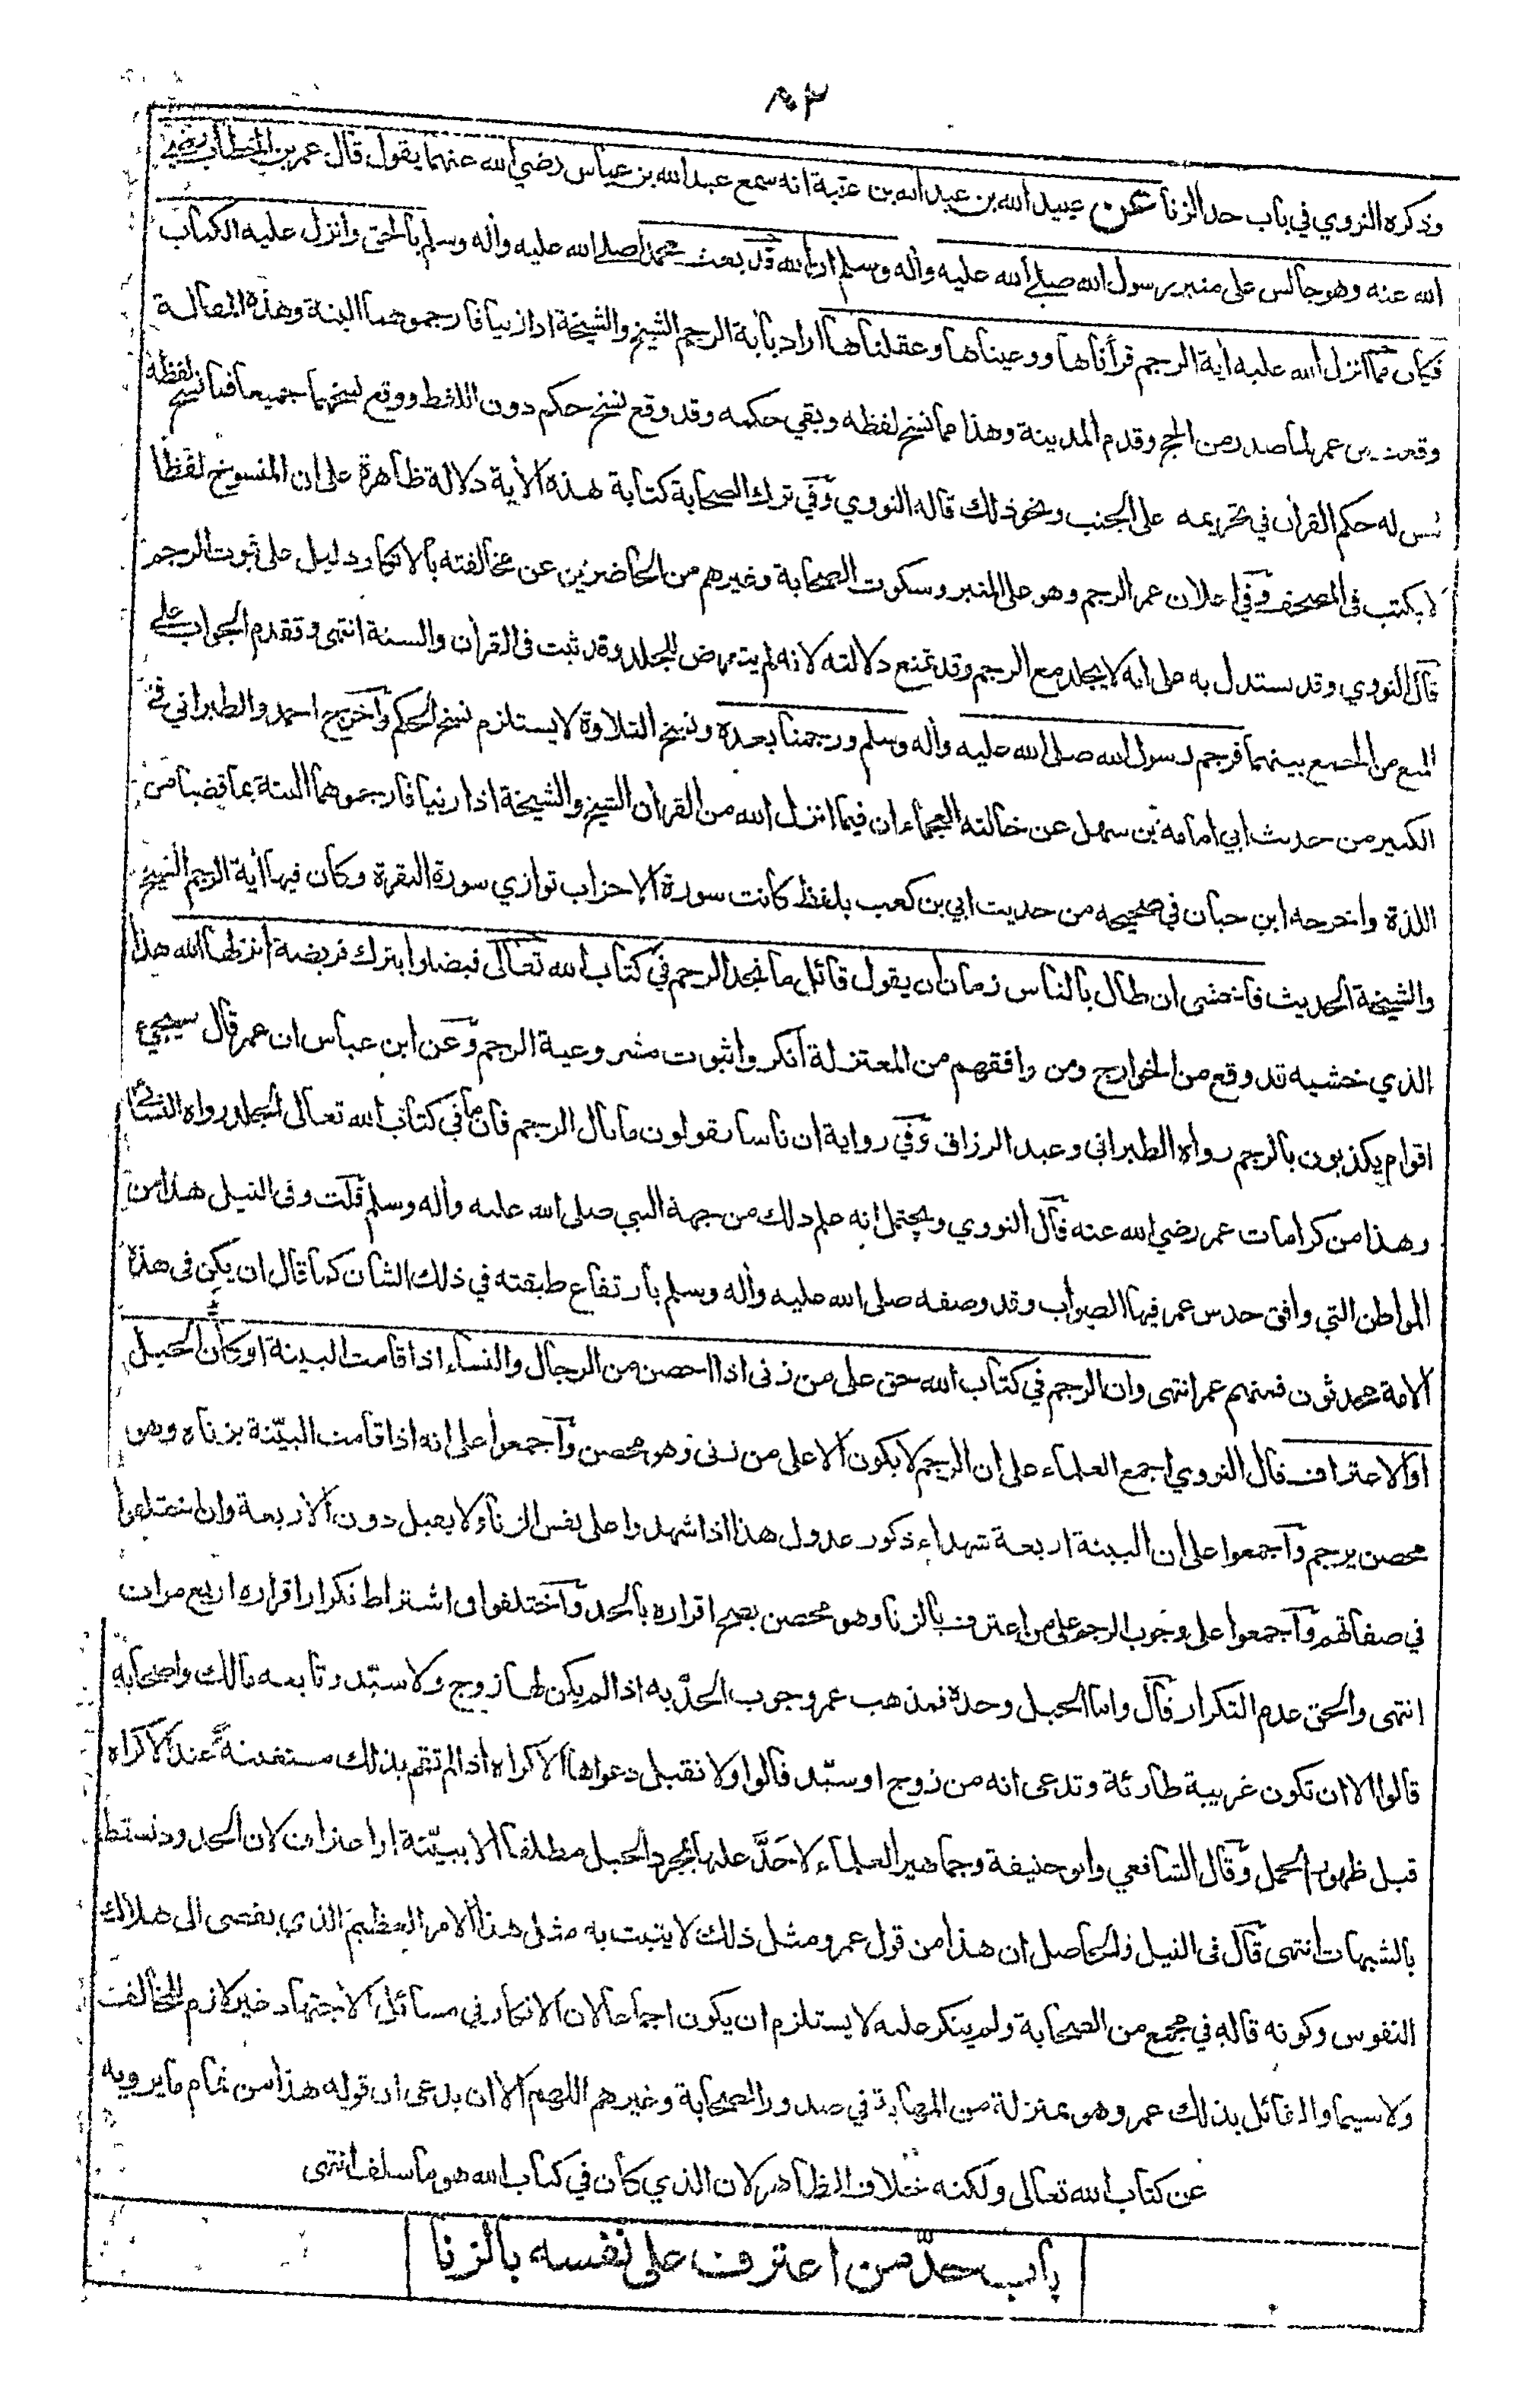 ٨٣
وذكره النووي في باب حد الزنا عن عبيد الله بن عبد الله بن عتبة انه سمع عبد الله بن عباس رضي الله عنهما يقول قال عمر بن الخطاب رضي
الله عنه وهو جالس على منبر رسول الله صلى الله عليه وأله وسلم ان الله قد بعث محمدا صلى الله عليه وأله وسلم بالحق وانزل عليه الكتاب
فكان مما انزل الله عليه أية الرجم قرأناها ووعيناها وعقلناها اراد بأية الرجم الشيخ والشيخة اذا زنيا فارجموهما البتة وهذه المقالة
وقعت من عمر لما صدر من الحج وقدم المدينة وهذا مما نسخ لفظه وبقي حكمه وقد وقع نسخ حكم دون اللفظ ووقع نسخهما جميعا فما نسخ لفظه
ليس له حكم القرأن في تحريمه على الجنب ونحو ذلك قاله النووي وفي ترك الصحابة كتابة هذه الأية دلالة ظاهرة على ان المنسوخ لفظا
لا يكتب في المصحف وفي اعلان عمر الرجم وهو على المنبر وسكوت الصحابة وغيرهم من الحاضرين عن مخالفته بالانكار دليل على ثبوت الرجم
قال النووي وقد يستدل به على انه لا يجلد مع الرجم وقد تمنع دلالته لانه لم يتعرض للجلد وقد ثبت في القرأن والسنة انتهى وتقدم الجواب على
المنع من الجمع بينهما فرجم رسول الله صلى الله عليه وأله وسلم ورجمنا بعده ونسخ التلاوة لا يستلزم نسخ الحكم وأخرج احمد والطبراني في
الكبير من حديث ابي امامة بن سهل عن خالته العجماء ان فيما انزل الله من القرأن الشيخ والشيخة اذا زنيا فارجموهما البتة بما قضيا من
اللذة واخرجه ابن حبان في صحيحه من حديث ابي بن كعب بلفظ كانت سورة الاحزاب توازي سورة البقرة وكان فيها أية الرجم الشيخ
والشيخة الحديث فاخشى ان طال بالناس زمان ان يقول قائل ما نجد الرجم في كتاب الله تعالى فيضلوا بترك فريضة انزلها الله هذا
الذي خشيه قد وقع من الخوارج ومن وافقهم من المعتزلة أنكروا ثبوت مشروعية الرجم وعن ابن عباس ان عمر قال سيجيء
اقوام يكذبون بالرجم رواه الطبراني وعبد الرزاق وفي رواية ان ناسا يقولون ما بال الرجم فان ما في كتاب الله تعالى الجلد رواه النسائي
وهذا من كرامات عمر رضي الله عنه قال النووي ويحتمل انه علم ذلك من جهة النبي صلى الله عليه وأله وسلم قلت وفي النيل هذا من
المواطن التي وافق حدس عمر فيها الصواب وقد وصفه صلى الله عليه وأله وسلم بارتفاع طبقته في ذلك الشان كما قال ان يكن في هذه
الامة محدثون فمنهم عمر انتهى وان الرجم في كتاب الله حق على من زنى اذا احصن من الرجال والنساء اذا قامت البينة او كان الحبل
او الاعتراف قال النووي اجمع العلماء على ان الرجم لا يكون الا على من زنى وهو محصن وأجمعوا على انه اذا قامت البيّنة بزناه وهو
محصن يرجم وأجمعوا على ان البينة اربعة شهداء ذكور عدول هذا اذا شهدوا على نفس الزنا ولا يقبل دون الاربعة وان اختلفوا
في صفاتهم وأجمعوا على وجوب الرجم على من اعترف بالزنا وهو محصن يصح اقراره بالحد وأختلفوا في اشتراط تكرار اقراره اربع مرات
انتهى والحق عدم التكرار قال واما الحبل وحده فمذهب عمر وجوب الحدّ به اذا لم يكن لها زوج ولا سيّد وتابعه مالك واصحابه
قالوا الا ان تكون غريبة طارئة وتدعى انه من زوج او سيّد قالوا ولا نقبل دعواها الاكراه اذا لم تقم بذلك مستغيثة عند الاكراه
قبل ظهور الحمل وقال الشافعي وابو حنيفة وجماهير العلماء لا حَدَّ عليها بمجرد الحبل مطلقا الا ببيّنة او اعتراف لان الحدود تسقط
بالشبهات انتهى قال في النيل والحاصل ان هذا من قول عمر ومثل ذلك لا يثبت به مثل هذا الامر العظيم الذي يفضى الى هلاك
النفوس وكونه قاله في مجمع من الصحابة ولم ينكر عليه لا يستلزم ان يكون اجماعا لان الانكار في مسائل الاجتهاد غير لازم للمخالف
ولا سيما والقائل بذلك عمر وهو بمنزلة من المهابة في صدور الصحابة وغيرهم اللهم الا ان يدعى ان قوله هذا من تمام ما يرويه
عن كتاب الله تعالى ولكنه خلاف الظاهر لان الذي كان في كتاب الله هو ما سلف انتهى
باب حدّ من اعترف على نفسه بالزنا